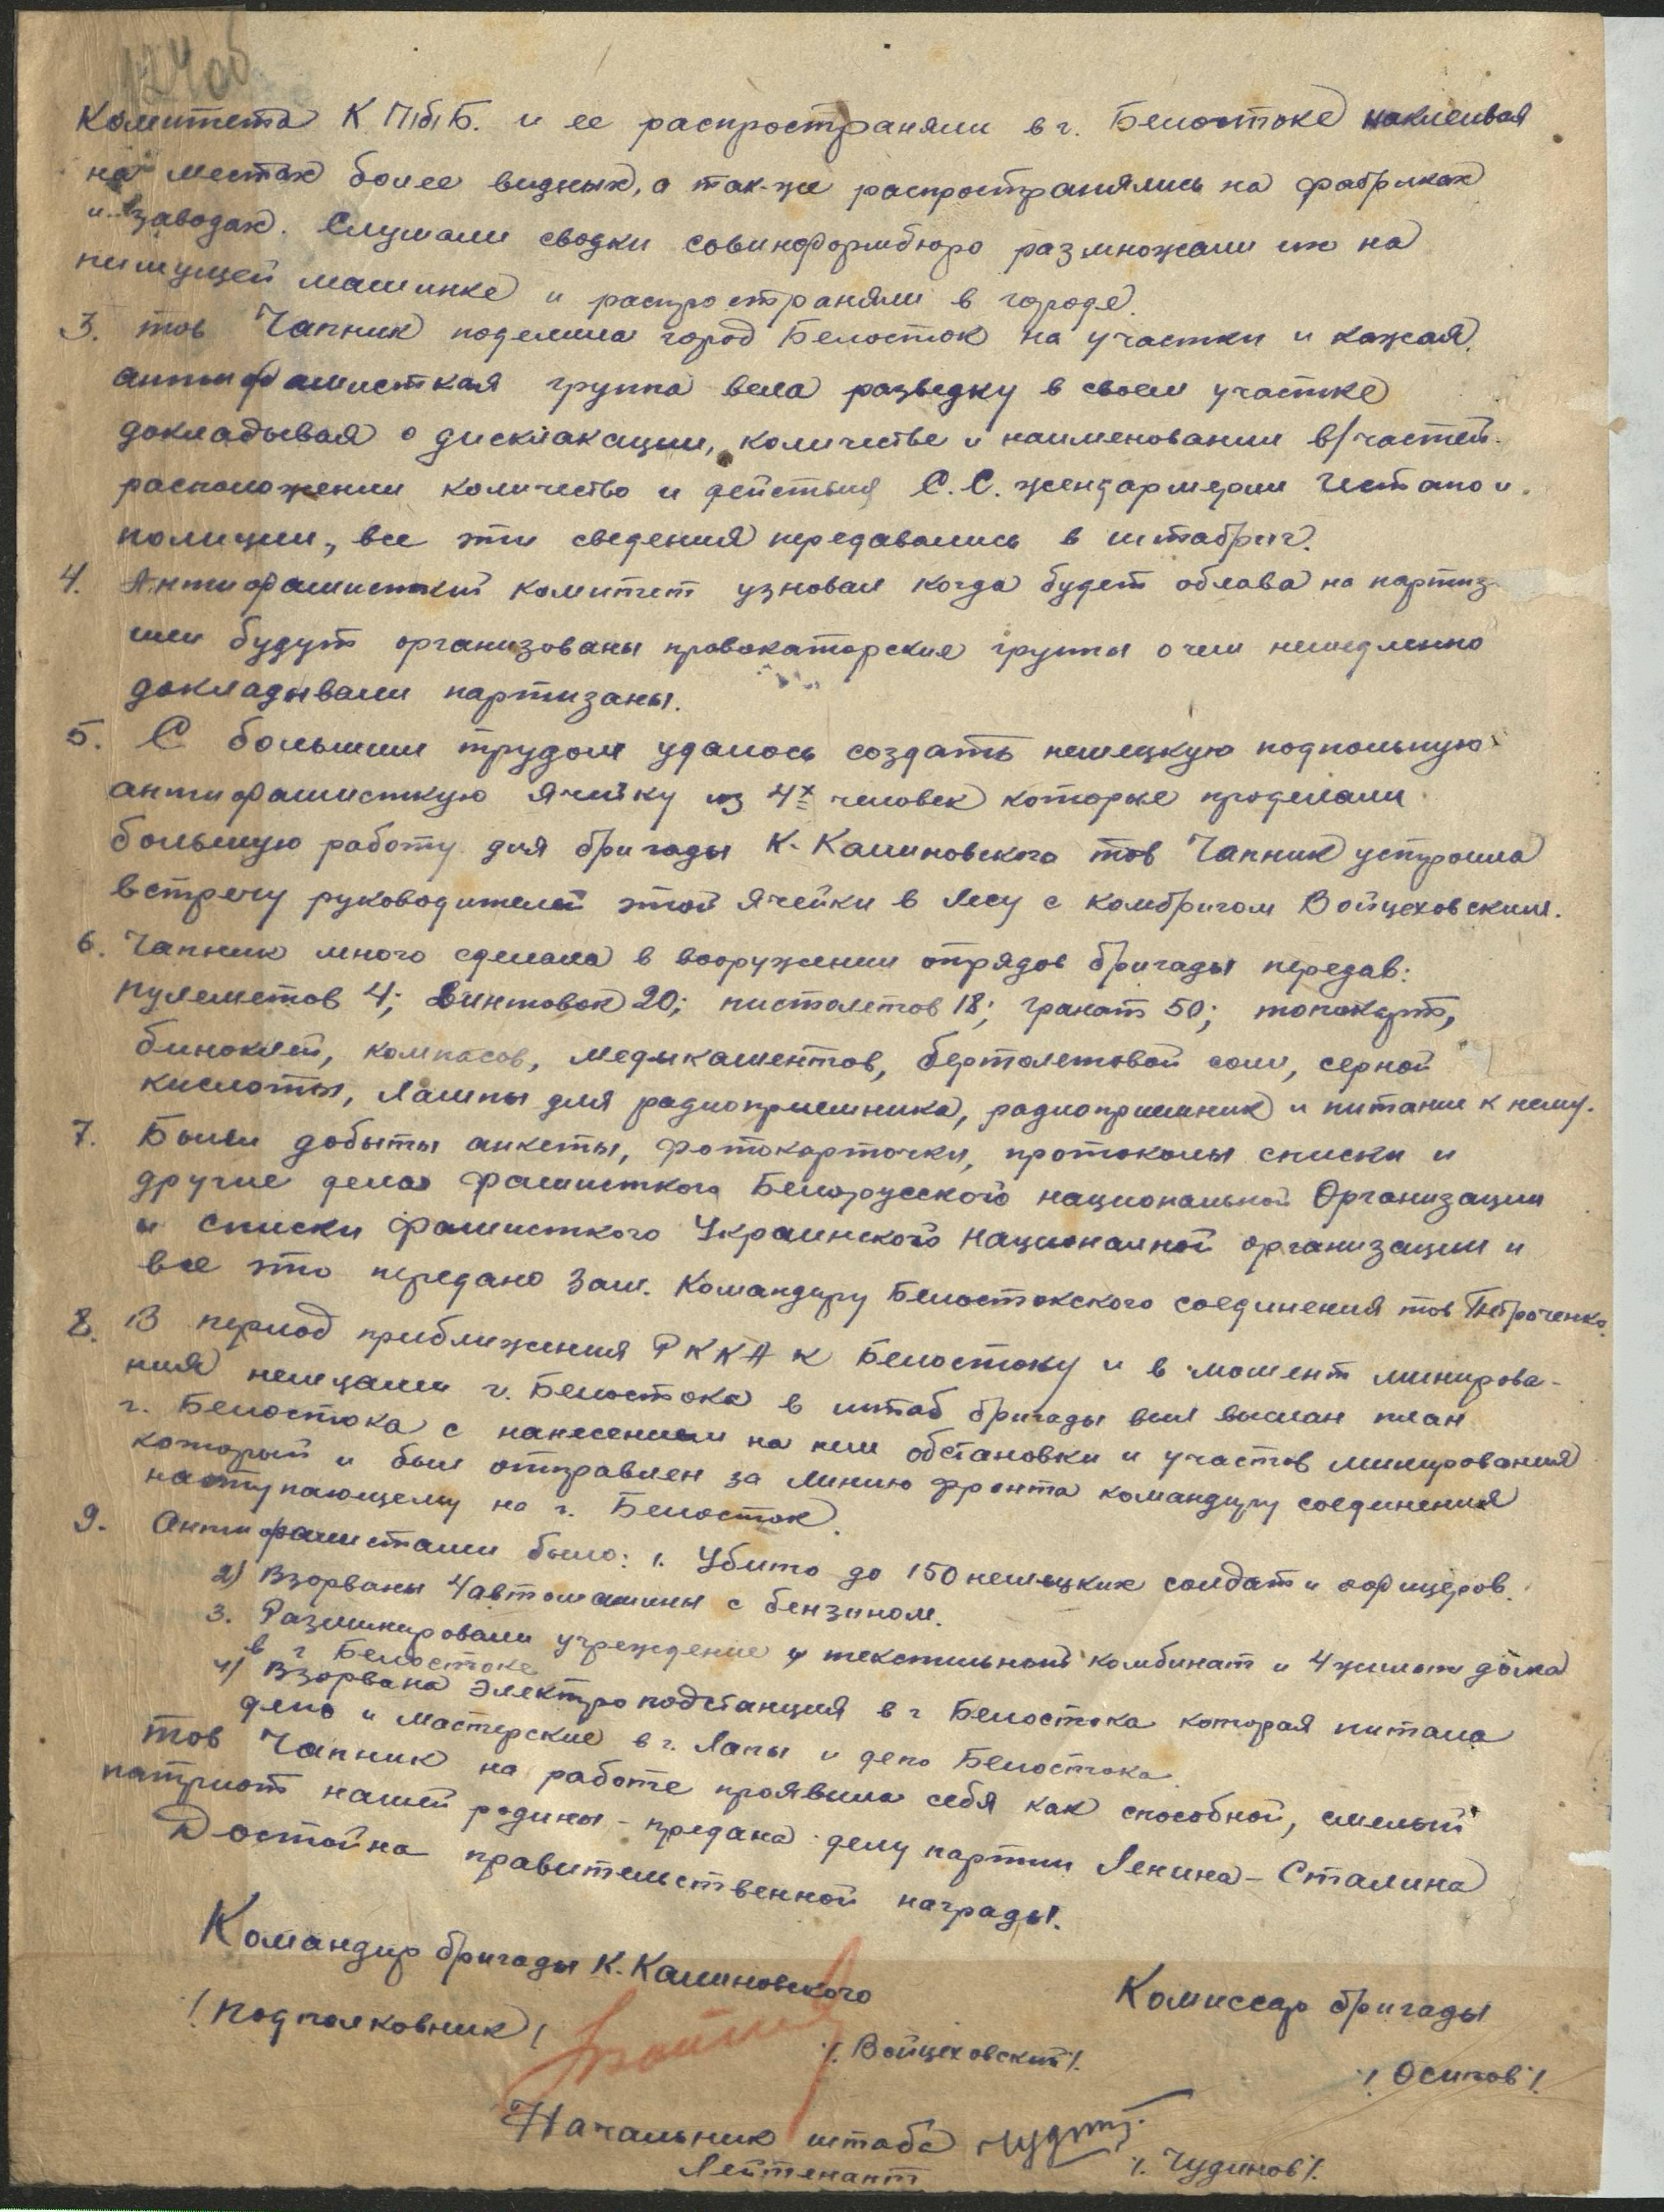 124об
Комитета К.П/б/Б. и ее распространяли в г. Белостоке наклеивая
на местах более видных, а так-же распространялись на фабриках
и заводах. Слушали сводки совинформбюро размножали их на
пишущей машинке и распространяли в городе.
3. тов Чапник поделила город Белосток на участки и кажая
антифашисткая группа вела разведку в своем участке
докладывая о дисклакации, количестве и наименовании в/частей.
расположении количество и действия С.С. жендармерии Гестапо и
полиции, все эти сведения передавались в штабриг.
4. Антифашисткий комитет узновал когда будет облава на партиз
или будут организованы провокаторские группы о чем немедленно
докладывали партизаны.
5. С большим трудом удалось создать немецкую подпольную
антифашисткую ячейку из 4х человек которые проделали
большую работу для бригады К. Калиновского тов Чапник устроила
встречу руководителей этой ячейки в лесу с комбригом Войцеховским.
6. Чапник много сделала в вооружении отрядов бригады передав:
пулеметов 4; винтовок 20; пистолетов 18; гранат 50; топокарт,
биноклей, компасов, медикаментов, бертолетовой соли, серной
кислоты, лампы для радиоприемника, радиоприемник и питание к нему.
7. Были добыты анкеты, фотокарточки, протоколы списки и
другие дела фашисткого Белорусского национальной Организации
и списки фашисткого Украинского националной организации и
все это передано Зам. Командиру Белостокского соединения тов
8. В период приближения РККА к Белостоку и в момент минирова-
ния немцами г. Белостока в штаб бригады выслан план
г. Белостока с нанесением на нем обстановки и участов минирования
который и был отправлен за линию фронта командиру соединения
наступающему на г. Белосток.
9. Антифашистами было: 1. Убито до 150 немецких солдат и оофицеров.
2) Взорваны 4 автомашины с бензином.
3. Разминировали учреждение и текстильной комбинат и 4 жилых дома
в г Белостоке
4) Взорвана электроподстанция в г Белостока которая питала
депо и мастерские в г. Лапы и депо Белостока.
тов Чапник на работе проявила себя как способной, смелый
патриот нашей родины - предана делу партии Ленина - Сталина
Достойна правительственной награды.
Командир бригады К. Калиновского
/Подполковник/
/Войцеховский/.
Комиссар бригады
/Осипов/.
Начальник штаба
Лейтенант
/Чудинов/.